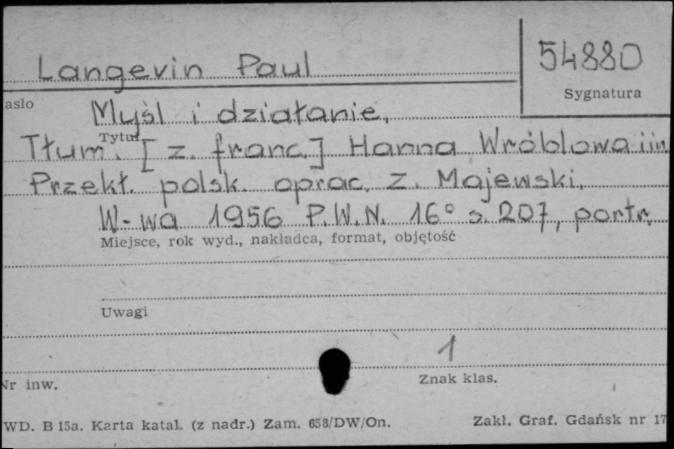 Langevin Paul
54880
Sygnatura
asło
Myśl i działanie,
Tytuł
Tłum. [z. franc.] Hanna Wróblowa i in
Przekł. polsk. oprac. Z. Majewski.
W-wa 1956 P.W.N. 16° s. 207, portr.
Miejsce, rok wyd., nakładca, format, objętość
Uwagi
1
Nr inw.
Znak klas.
WD. B 15a. Karta katal. (z nadr.) Zam. 658/DW/On.
Zakł. Graf. Gdańsk nr 17